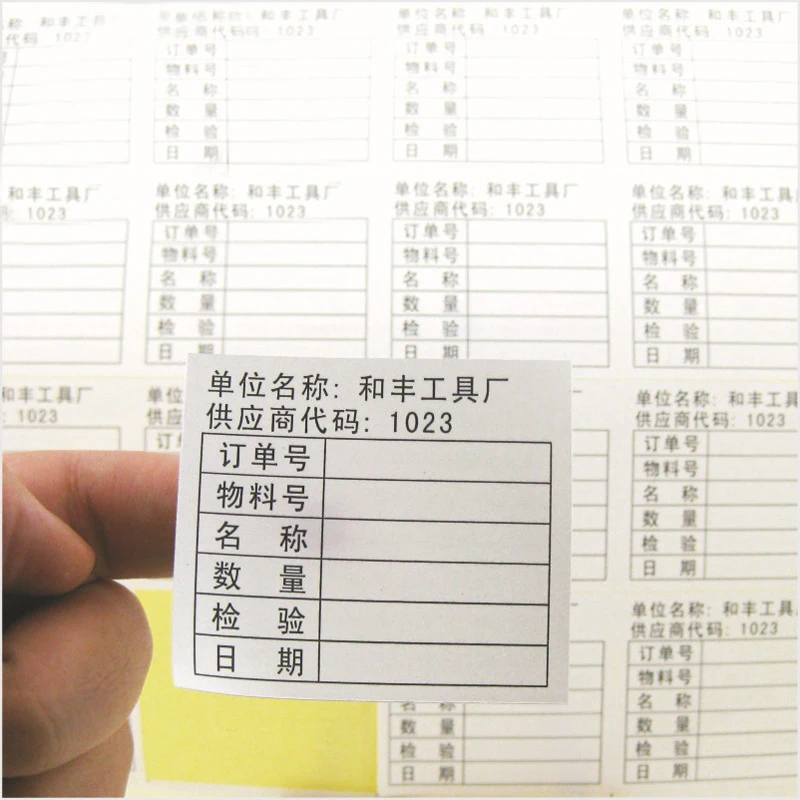 单位名称: 和丰工具厂
供应商代码: 1023
订单号
物料号
名 称
数 量
检 验
日 期